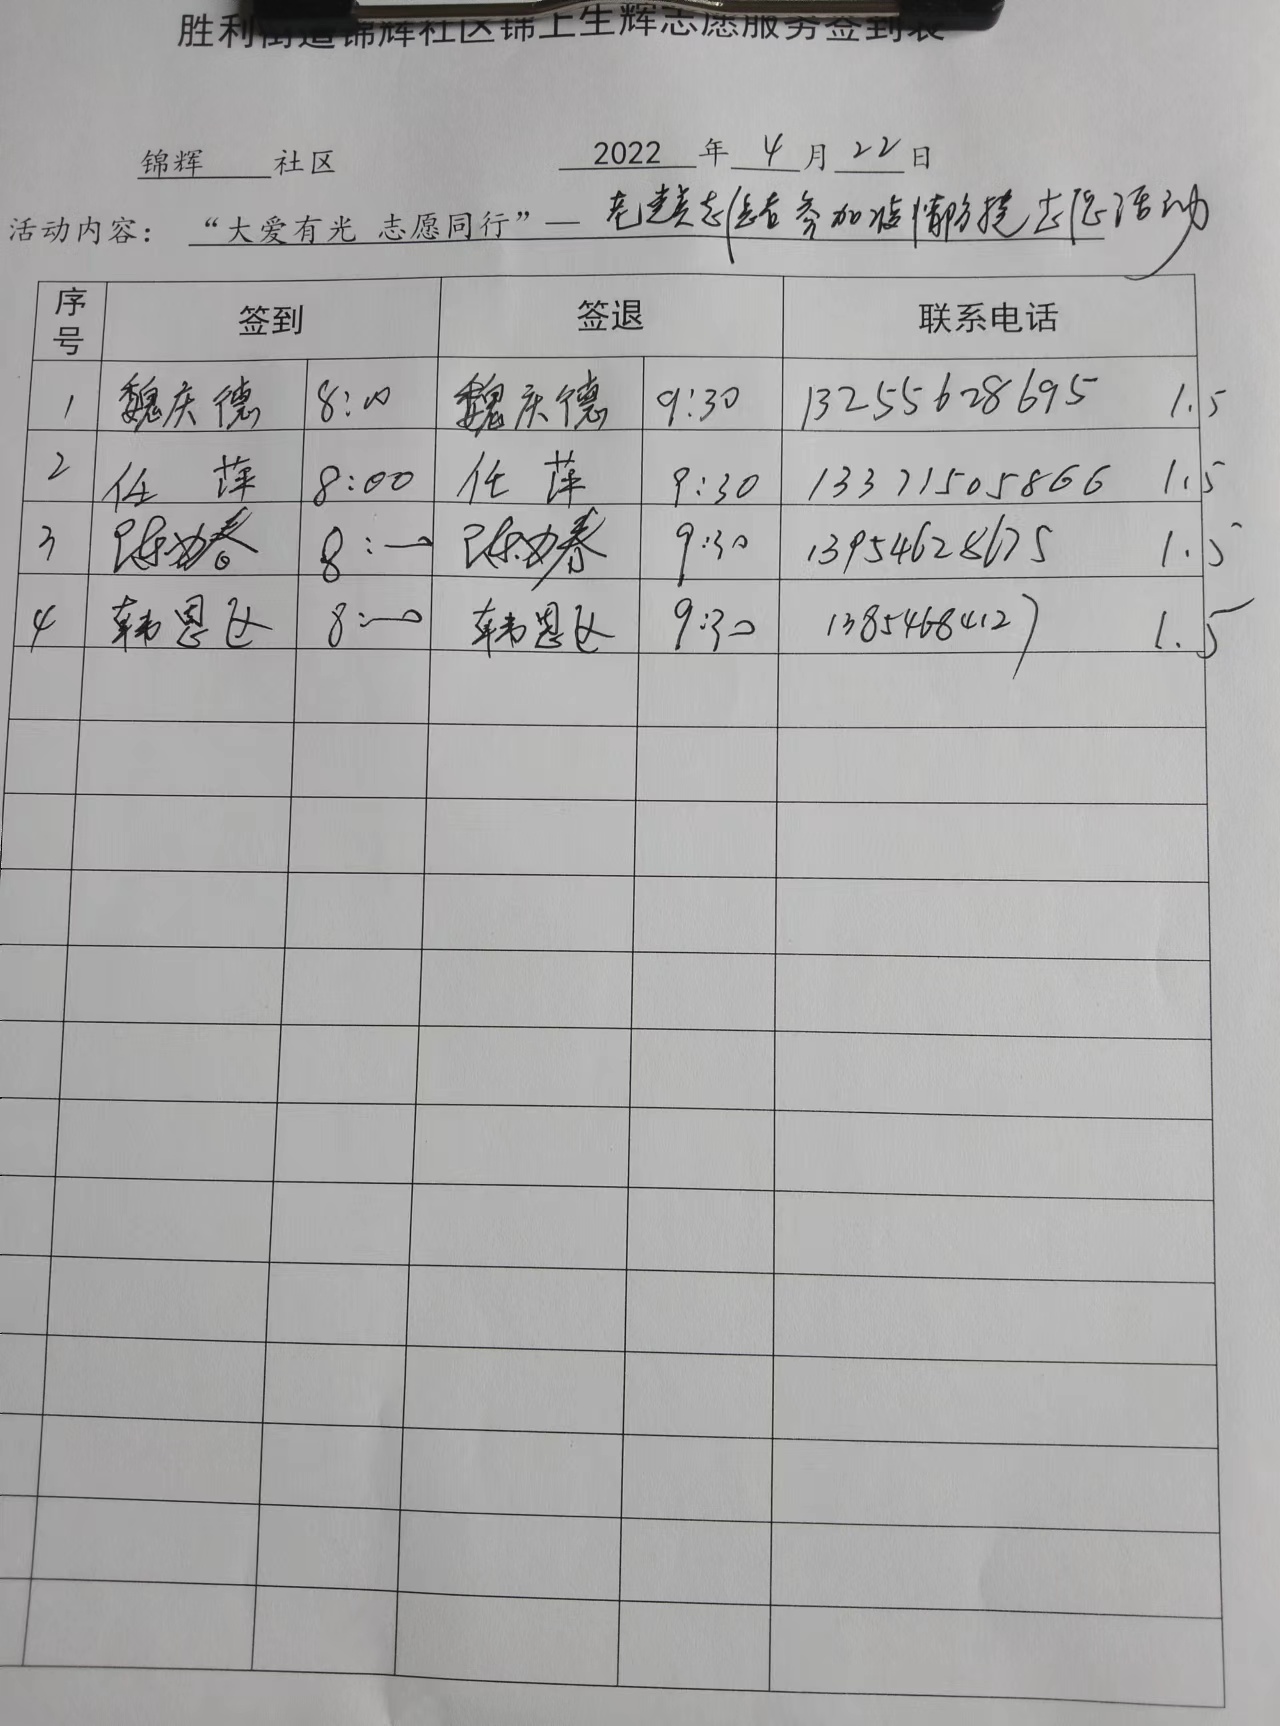 胜利街道锦辉社区锦上生辉志愿服务签到表
锦辉 社区 2022 年 4 月 22 日
活动内容： “大爱有光 志愿同行”— 志愿者参加疫情防控志愿活动
序号 签到 签退 联系电话
1 魏庆德 8:00 魏庆德 9:30 13255628695 1.5
2 任萍 8:00 任萍 9:30 13371505866 1.5
3 8:00 9:30 13954628675 1.5
4 韩恩 8:00 韩恩 9:30 13854684127 1.5